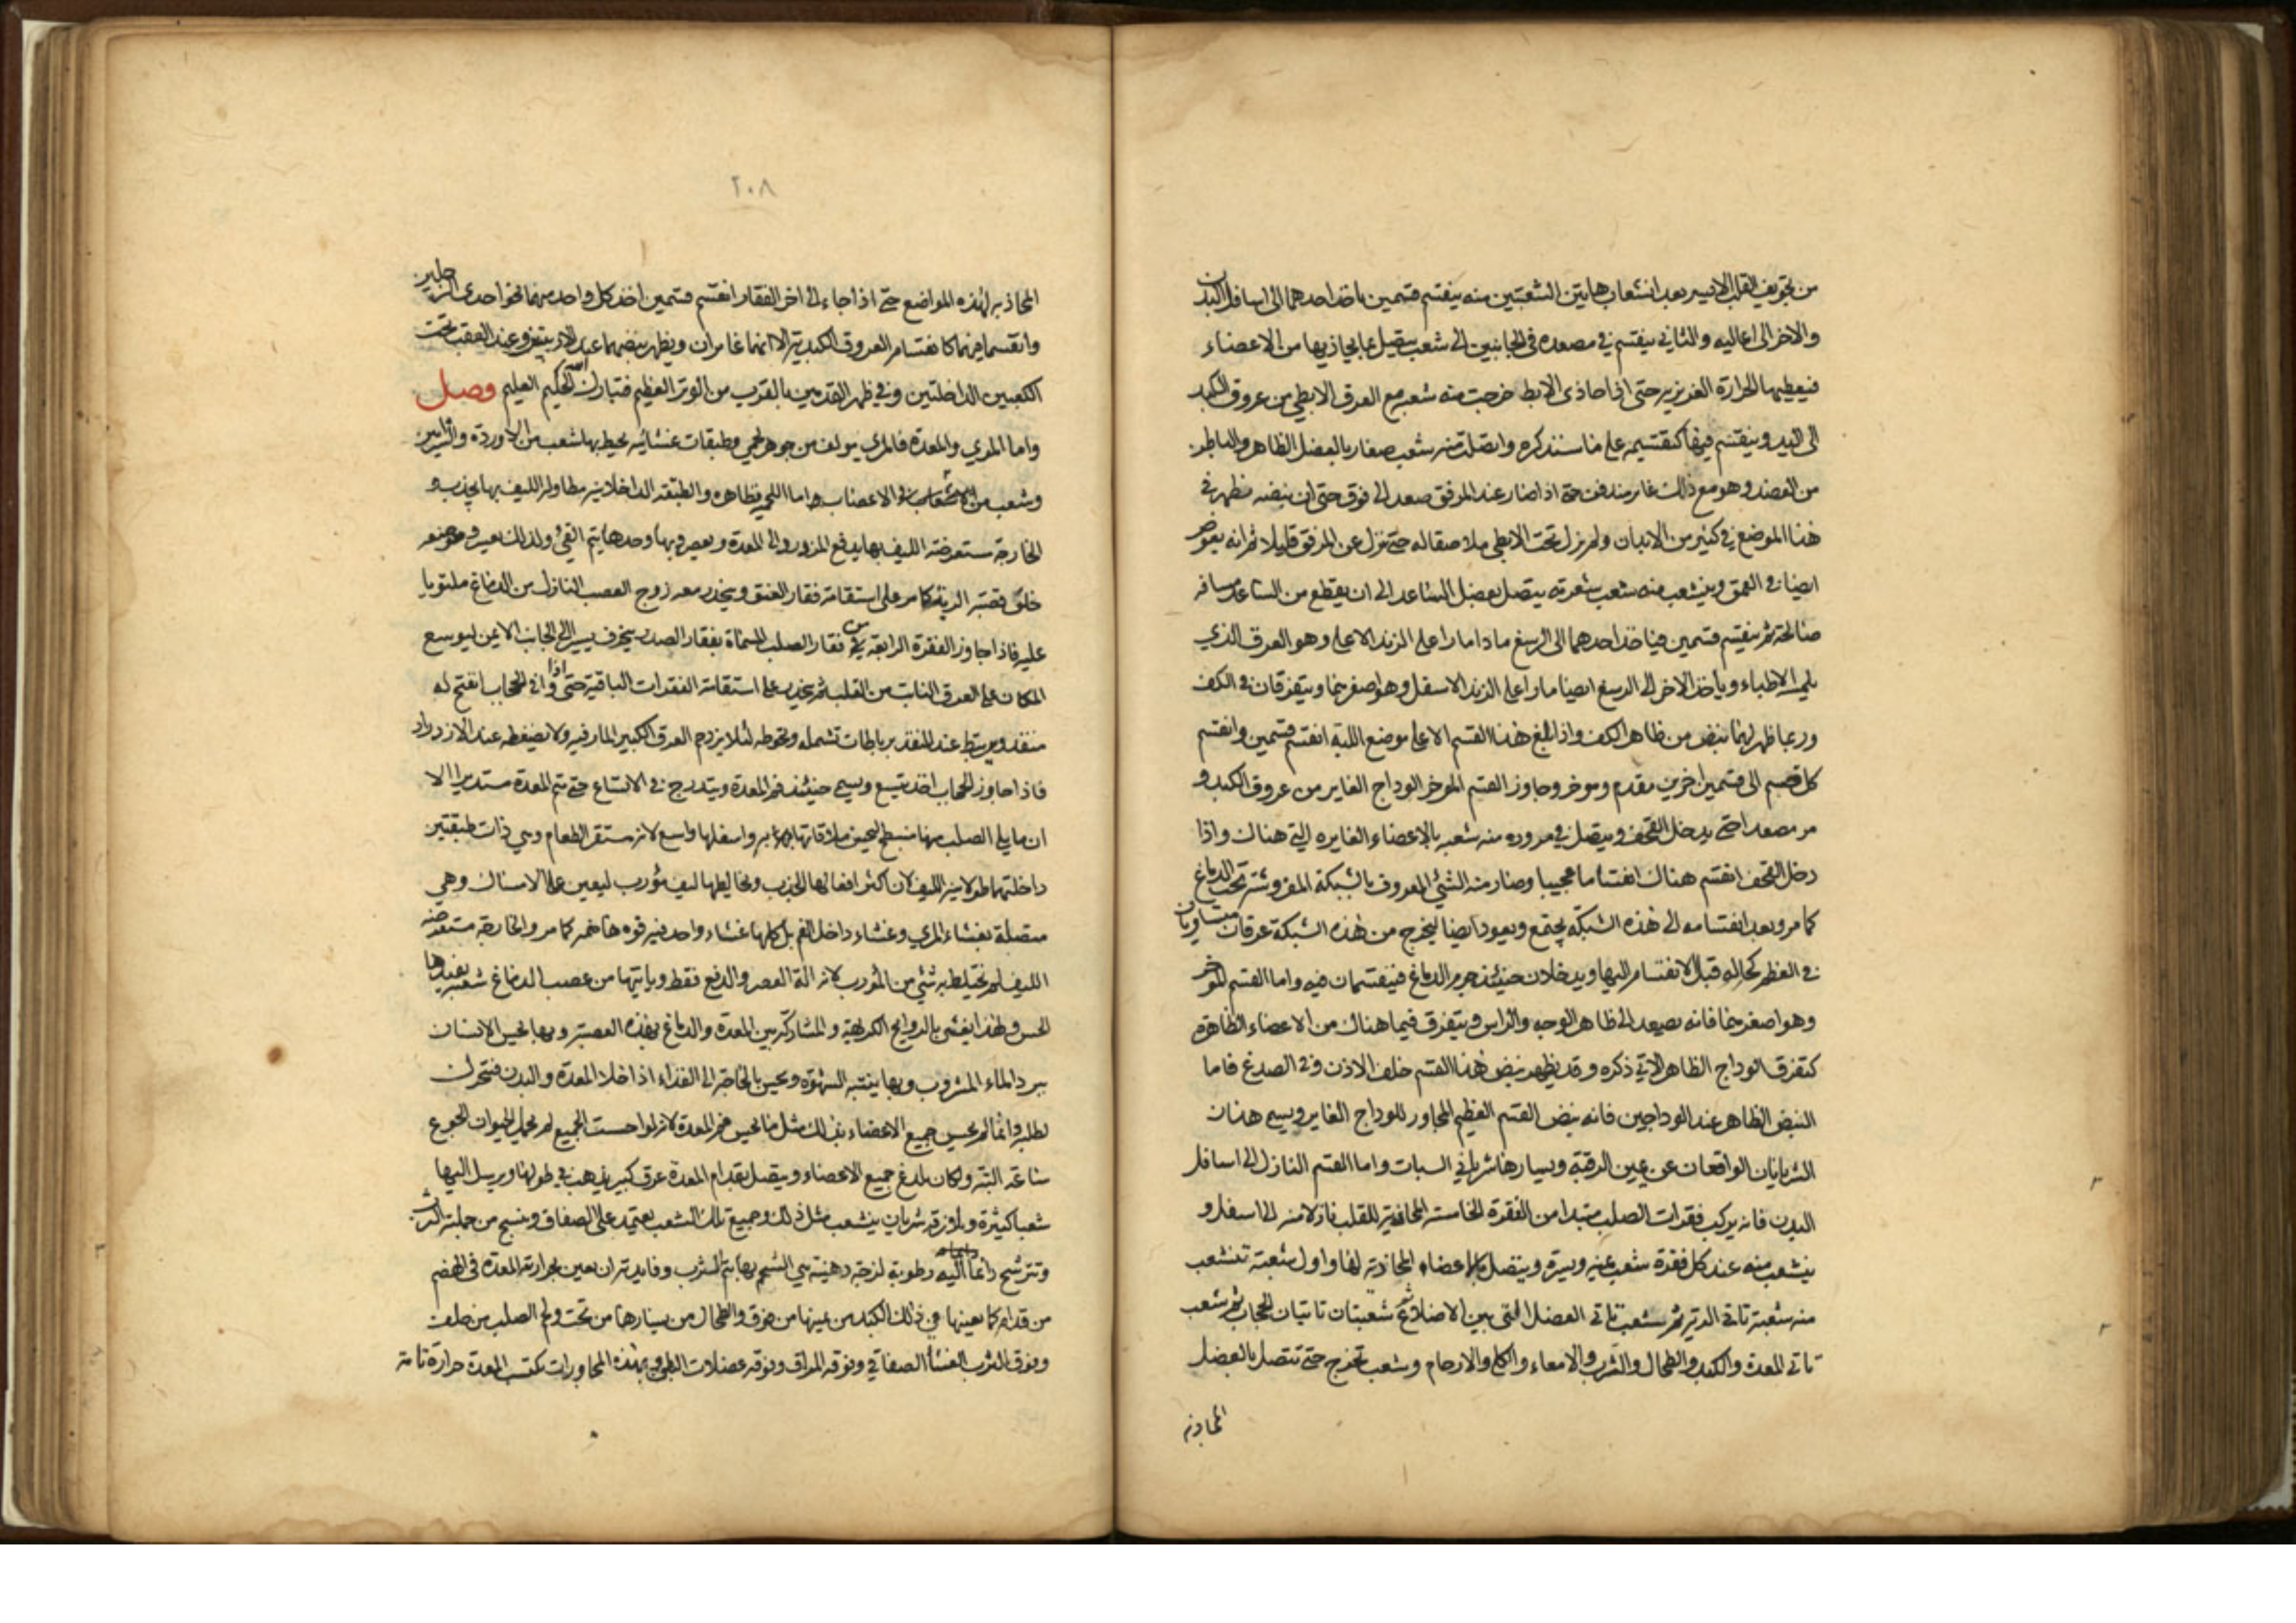 من تجويف القلب الايسر بعد انشعاب هاتين الشعبتين منه ينقسم قسمين ياخذ احدهما الى اسافل البدن
والاخر الى اعاليه والثاني ينقسم في مصعده في الجانبين الى شعب يتصل بما يحاذيها من الاعضاء
فيعطيها الحرارة الغريزيه حتى اذا حاذى الابط خرجت منه شعبة مع العرق الابطي من عروق الكبد
الى اليد وينقسم فيها كتقسيمه على ما سنذكره واتصلت منه شعب صغار بالعضل الظاهر والباطن
من العضد وهو مع ذلك غاير مندفن حتى اذا صار عند المرفق صعد الى فوق حتى ان نبضه يظهر في
هذا الموضع في كثير من الابدان ولم يزل تحت الابطي ملاصقا له حتى نزل عن المرفق قليلا ثم انه يغوص
ايضا في العمق وينشعب منه شعب شعرية يتصل بعضل الساعد الى ان يقطع من الساعد مسافة
صالحة ثم ينقسم قسمين فياخذ احدهما الى الرسغ مارا على الزند الاعلى وهو العرق الذي
يلمسه الاطباء وياخذ الاخر الى الرسغ ايضا مارا على الزند الاسفل وهو اصغرهما ويتفرقان في الكف
وربما ظهر لهما نبض من ظاهر الكف واذا بلغ هذا القسم الاعلى موضع اللبة انقسم قسمين وانقسم
كل قسم الى قسمين اخرين مقدم وموخر وجاوز القسم الموخر الوداج الغاير من عروق الكبد و
مر مصعدا حتى يدخل القحف ويتصل في مروره منه شعبه بالاعضاء الغايره التي هناك واذا
دخل القحف انقسم هناك انقساما عجيبا وصار منه الشئ المعروف بالشبكة المفروشة تحت الدماغ
كما مر وبعد انقسامه الى هذه الشبكة يجتمع ويعود ايضا فيخرج من هذه الشبكة عرقان متساويان
في العظم كحاله قبل الانقسام اليها ويدخلان حينئذ جرم الدماغ فينقسمان فيه واما القسم الموخر
وهو اصغرهما فانه يصعد الى ظاهر الوجه والراس ويتفرق فيما هناك من الاعضاء الظاهرة
كتفرق الوداج الظاهر الاتي ذكره وقد يظهر نبض هذا القسم خلف الاذن وفي الصدغ فاما
النبض الظاهر عند الوداجين فانه نبض القسم العظيم المجاور للوداج الغاير ويسمى هذان
الشريانان الواقعان عن يمين الرقبة ويسارها شرياني السبات واما القسم النازل الى اسافل
البدن فانه يركب فقرات الصلب مبتدا من الفقرة الخامسة المحاذية للقلب نازلا منه الى اسفل و
ينشعب منه عند كل فقرة شعب يمنة ويسرة ويتصل بالاعضاء المحاذية لها واول شعبة تنشعب
منه شعبة تاتي الرية ثم شعب تاتي العضل التي بين الاضلاع ثم شعبتان تاتيان الحجاب ثم شعب
تاتي المعدة والكبد والطحال والثرب والامعاء والكلى والارحام وشعب تخرج حتى تتصل بالعضل
المحاذية
٢٠٨
المحاذية لهذه المواضع حتى اذا جاء الى اخر الفقار انقسم قسمين اخذ كل واحد منهما نحو احدى الرجلين
وانقسما فيهما كانقسام العروق الكبدية الا انهما غايران ويظهر نبضهما عند العقب تحت
الكعبين الداخلتين وفي ظهر القدمين بالقرب من الوتر العظيم فتبارك الله الحكيم العليم وصل
واما المري والمعدة فالمري مولف من جوهر لحمي وطبقات غشائيه يحيط بها شعب من الاوردة والشرايين
وشعب من الاعصاب واما اللحمي فظاهره والطبقة الداخلانيه مطاولة الليف بها يجذب و
الخارجة مستعرضة الليف بها يدفع المزدرد الى المعدة ويعصره وبها وحدها يتم القئ ولذلك يعسر وموضعه
خلف قصبة الرية كما مر على استقامة فقار العنق وينحدر معه زوج العصب النازل من الدماغ ملتويا
عليه فاذا جاوز الفقرة الرابعة من فقار الصلب المسماة بفقار الصدر ينحرف يسيرا الى الجانب الايمن ليوسع
المكان على العرق النابت من القلب ثم ينحدر على استقامة الفقرات الباقية حتى اذا وافى الحجاب انفتح له
منفذ ويرتبط عند المنفذ برباطات تشمله وتحوطه لئلا يزحم العرق الكبير المار فيه ولا يضغطه عند الازدراد
فاذا جاوز الحجاب اخذ يتسع ويسمى حينئذ فم المعدة ويتدرج في الاتساع حتى تتم المعدة مستديرا الا
ان ما يلي الصلب منها منبسط ليحسن ملاقاتها به واسفلها واسع لانه مستقر الطعام وهي ذات طبقتين
داخلتهما طولانية الليف لان اكثر افعالها الجذب ويخالطها ليف مؤرب ليعين على الامساك وهي
متصلة بغشاء المري وغشاء داخل الفم بل كلها غشاء واحد فيه قوه هاضمه كما مر والخارجة مستعرضه
الليف لم يختلط به شئ من المؤرب لانه الة العصر والدفع فقط وياتيها من عصب الدماغ شعبة يفيدها
الحس ولهذا يغثى بالروايح الكريهة والمشاركة بين المعدة والدماغ بهذه العصبة وبها يحس الانسان
ببرد الماء المشروب وبها ينتبه الشهوة ويحس بالحاجة الى الغذاء اذا خلا المعدة والبدن فتحرك
لطلبه وانما لم يحس جميع الاعضاء بذلك مثل ما يحس فم المعدة لانه لو احست الجميع لم يحمل الحيوان الجوع
ساعة البتة ولكان يلدغ جميع الاعضاء ويتصل بقدام المعدة عرق كبير يذهب في طولها ويرسل اليها
شعبا كثيرة ويلاصقه شريان ينشعب مثل ذلك وجميع تلك الشعب يعتمد على الصفاق وينسج من جملته الثرب
وتترشح دائما اليه رطوبة لزجة دهنية هي الشحم بها يتم الثرب وفايدته ان يعين بحرارته المعدة في الهضم
من قدام كما يعينها في ذلك الكبد من يمينها من فوق والطحال من يسارها من تحت ولحم الصلب من خلف
وفوق الثرب الغشاء الصفاقي وفوقه المراق وفوقه عضلات البطن وبهذه المجاورات يكتسب المعدة حرارة تامة